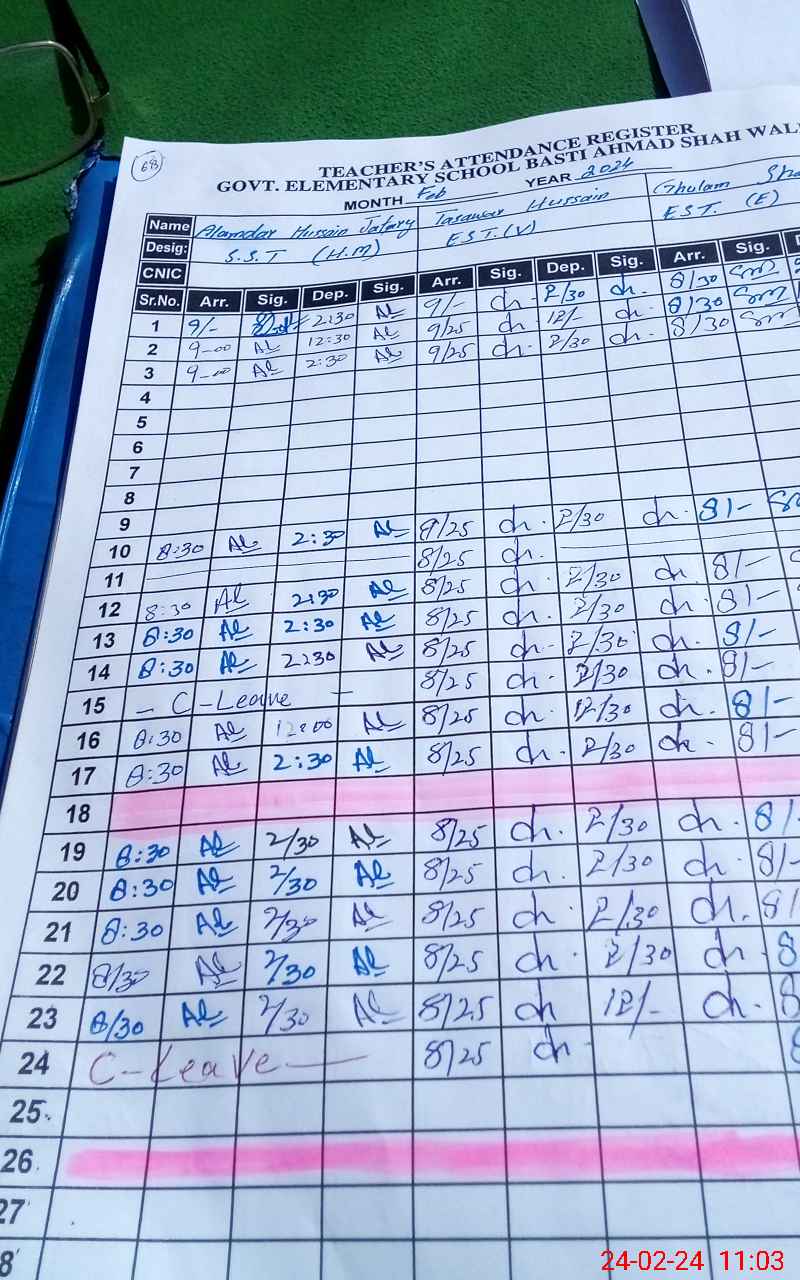 68
TEACHER'S ATTENDANCE REGISTER
GOVT. ELEMENTARY SCHOOL BASTI AHMAD SHAH
MONTH Feb YEAR 2024
Name Alamdar Hussain Jafery Tasawar Hussain Ghulam
Desig: S.S.T (H.M) EST.(V) EST. (E)
CNIC
Sr.No. Arr. Sig. Dep. Sig. Arr. Sig. Dep. Sig. Arr. Sig.
1 9/- 2:30 9/- ch. 2/30 ch. 8/30
2 9-00 12:30 9/25 ch 12/- ch. 8/30
3 9-00 2:30 9/25 ch. 2/30 ch. 8/30
4
5
6
7
8
9
10 8:30 2:30 9/25 ch. 2/30 ch. 8/-
11 8/25 ch.
12 8:30 2:30 8/25 ch. 2/30 ch. 8/-
13 8:30 2:30 8/25 ch. 2/30 ch. 8/-
14 8:30 2:30 8/25 ch. 2/30 ch. 8/-
15 - C-Leave - 8/25 ch. 2/30 ch. 8/-
16 8:30 12:00 8/25 ch. 12/30 ch. 8/-
17 8:30 2:30 8/25 ch. 2/30 ch. 8/-
18
19 8:30 2/30 8/25 ch. 2/30 ch. 8/-
20 8:30 2/30 8/25 ch. 2/30 ch. 8/-
21 8:30 2/30 8/25 ch. 2/30 ch. 8/
22 8/30 2/30 8/25 ch. 2/30 ch. 8
23 8/30 2/30 8/25 ch 12/- ch. 8
24 C-Leave - 8/25 ch
25
26
27
8
24-02-24 11:03